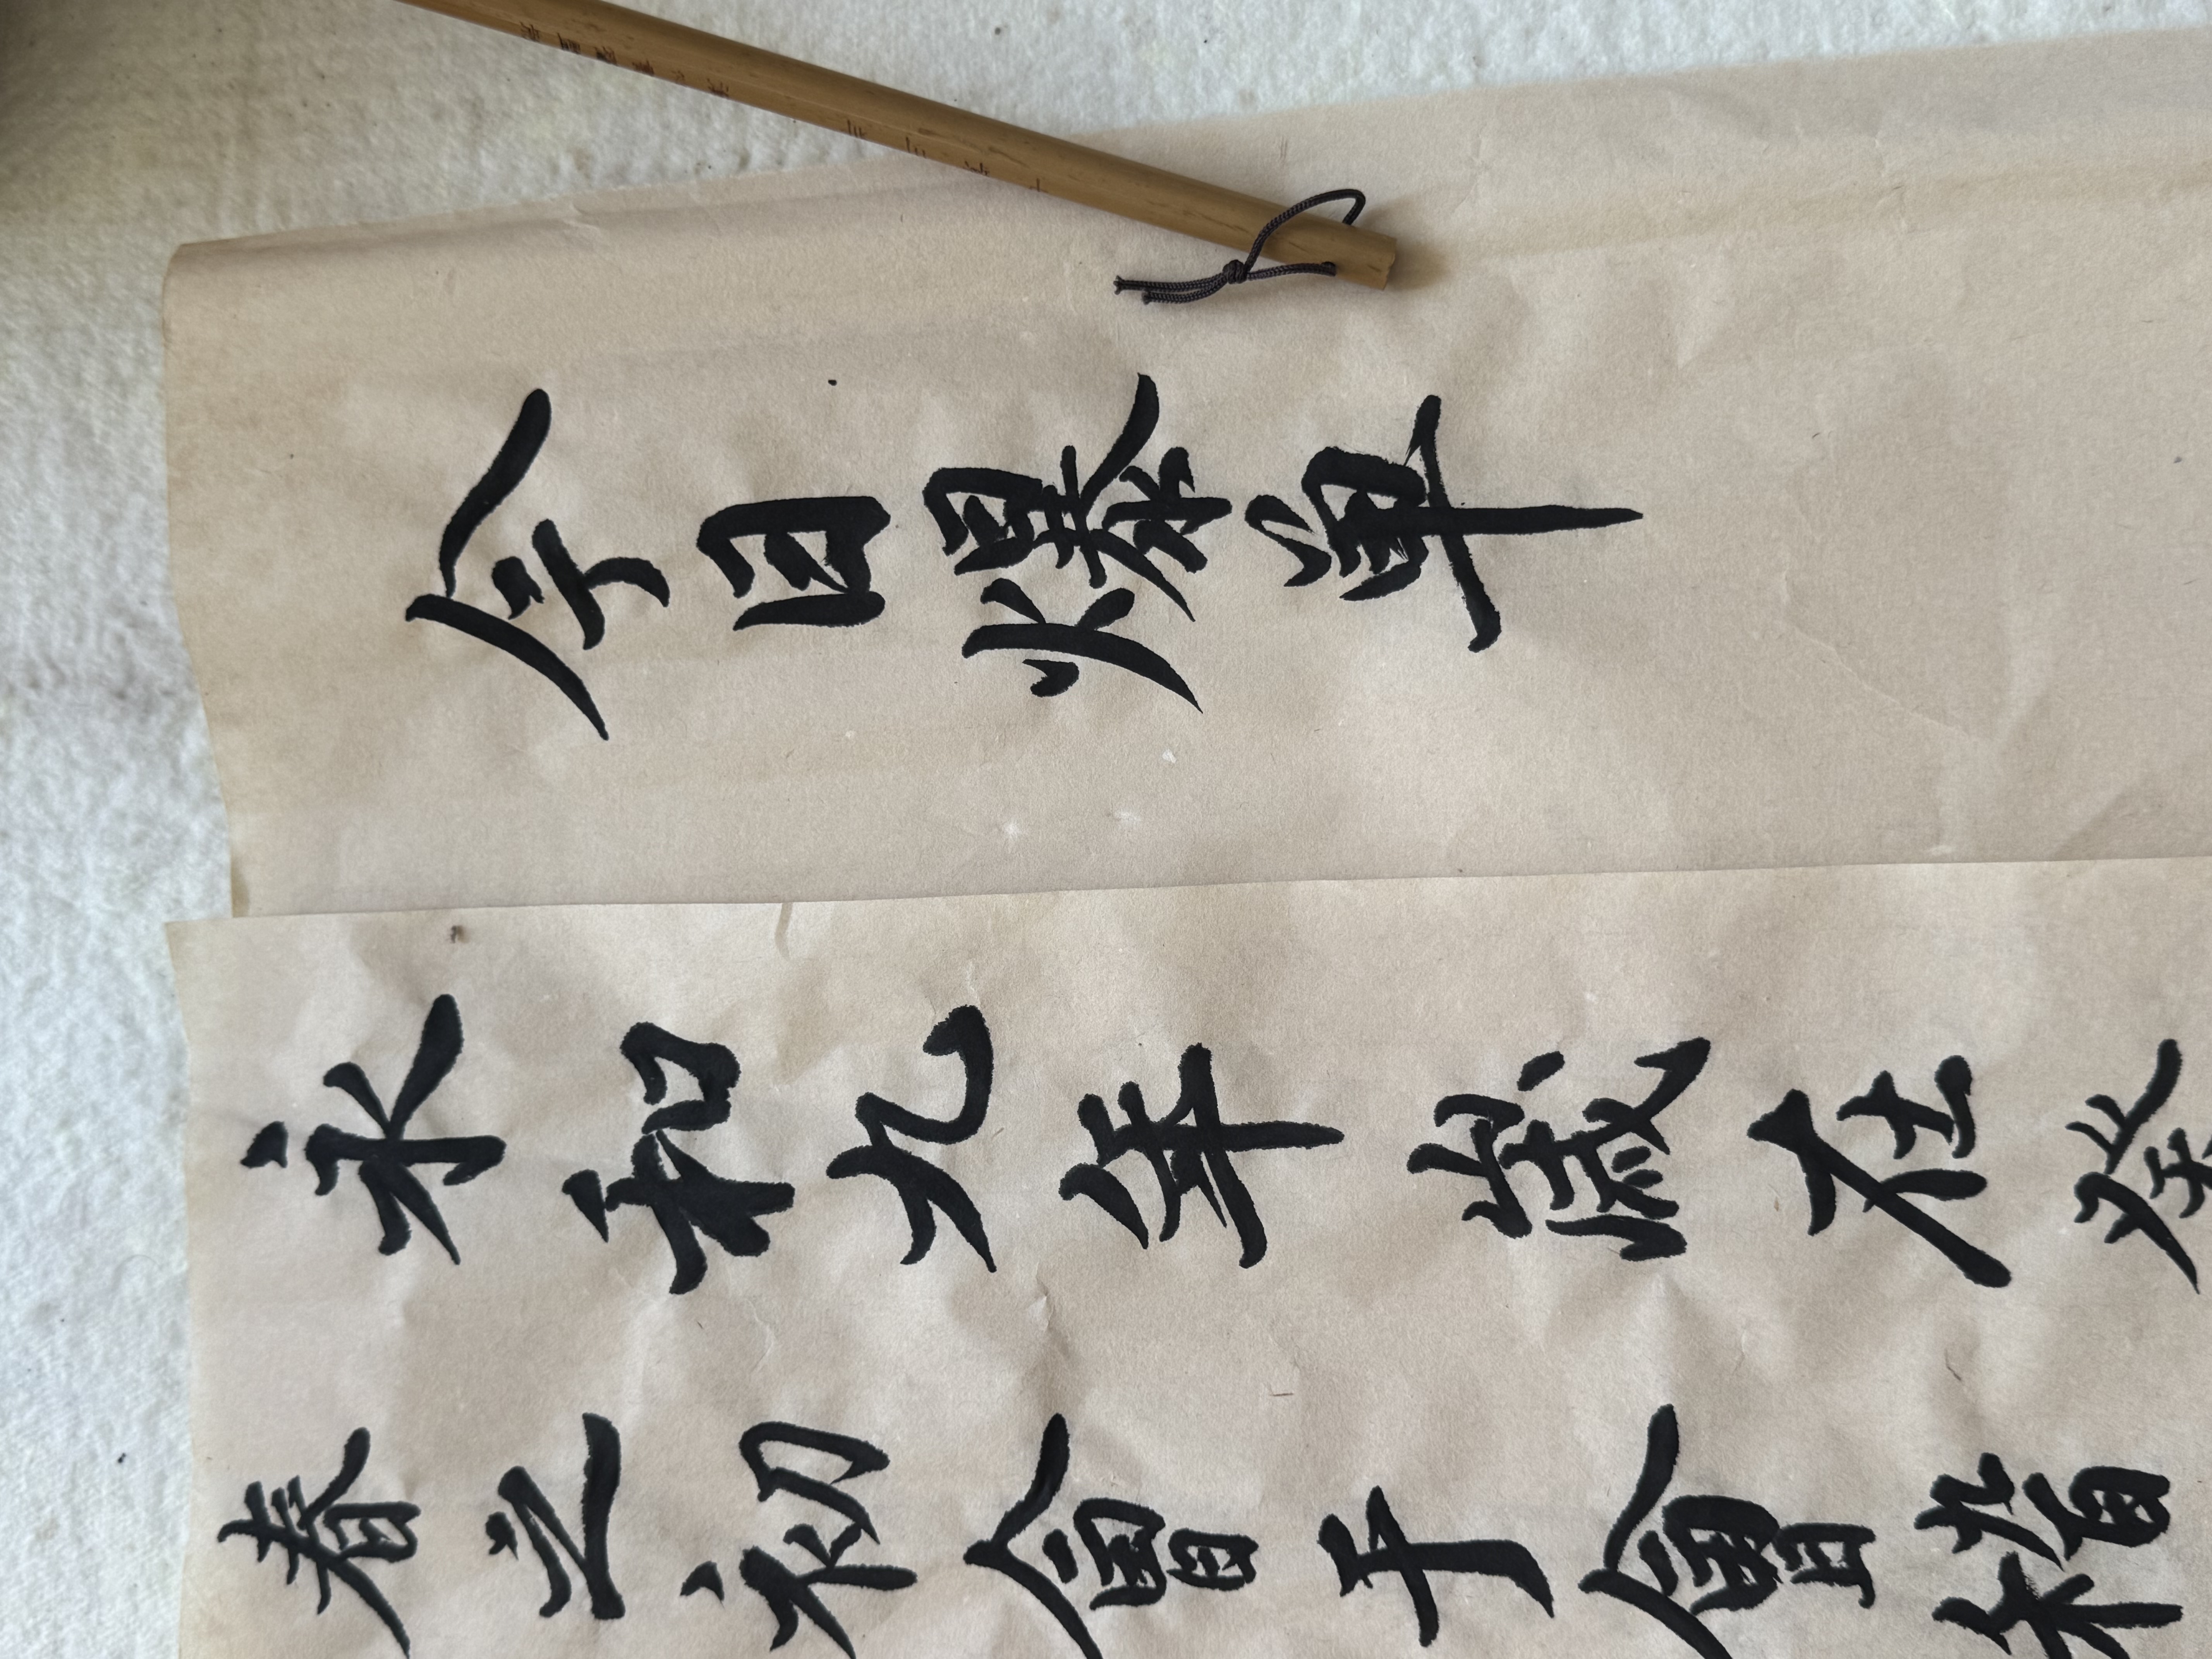 今日爆單
永和九年歲在癸
春之初會于會稽